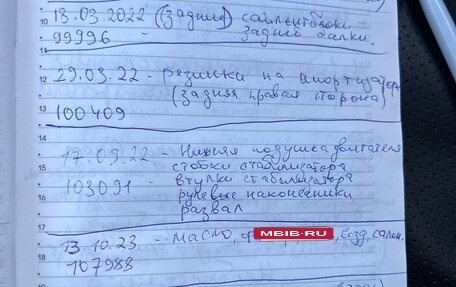 10
18.03.2022 (задние) сайлентблоки
99996 - задней балки.
11
12
29.03.22 - резинки на амортизаторы
(задняя правая сторона)
13
100409
14
15
17.09.22 - Нижняя подушка двигателя
стойки стабилизатора
16
103091 - втулки стабилизатора
рулевые наконечники
развал
17
13.10.23 - масло, MBIB-RU, возд, салон,
18
107983